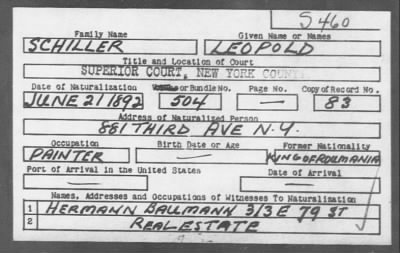 S 460
Family Name Given Name or Names
SCHILLER LEOPOLD
Title and Location of Court
SUPERIOR COURT, NEW YORK COUNTY
Date of Naturalization or Bundle No. Page No. Copy of Record No.
JUNE 21 1892 504 — 83
Address of Naturalized Person
881 THIRD AVE N.Y.
Occupation Birth Date or Age Former Nationality
PAINTER — KING OF ROUMANIA
Port of Arrival in the United States Date of Arrival
— —
Names, Addresses and Occupations of Witnesses To Naturalization
1 HERMANN BALLMANN 313 E 79 ST
2 REAL ESTATE